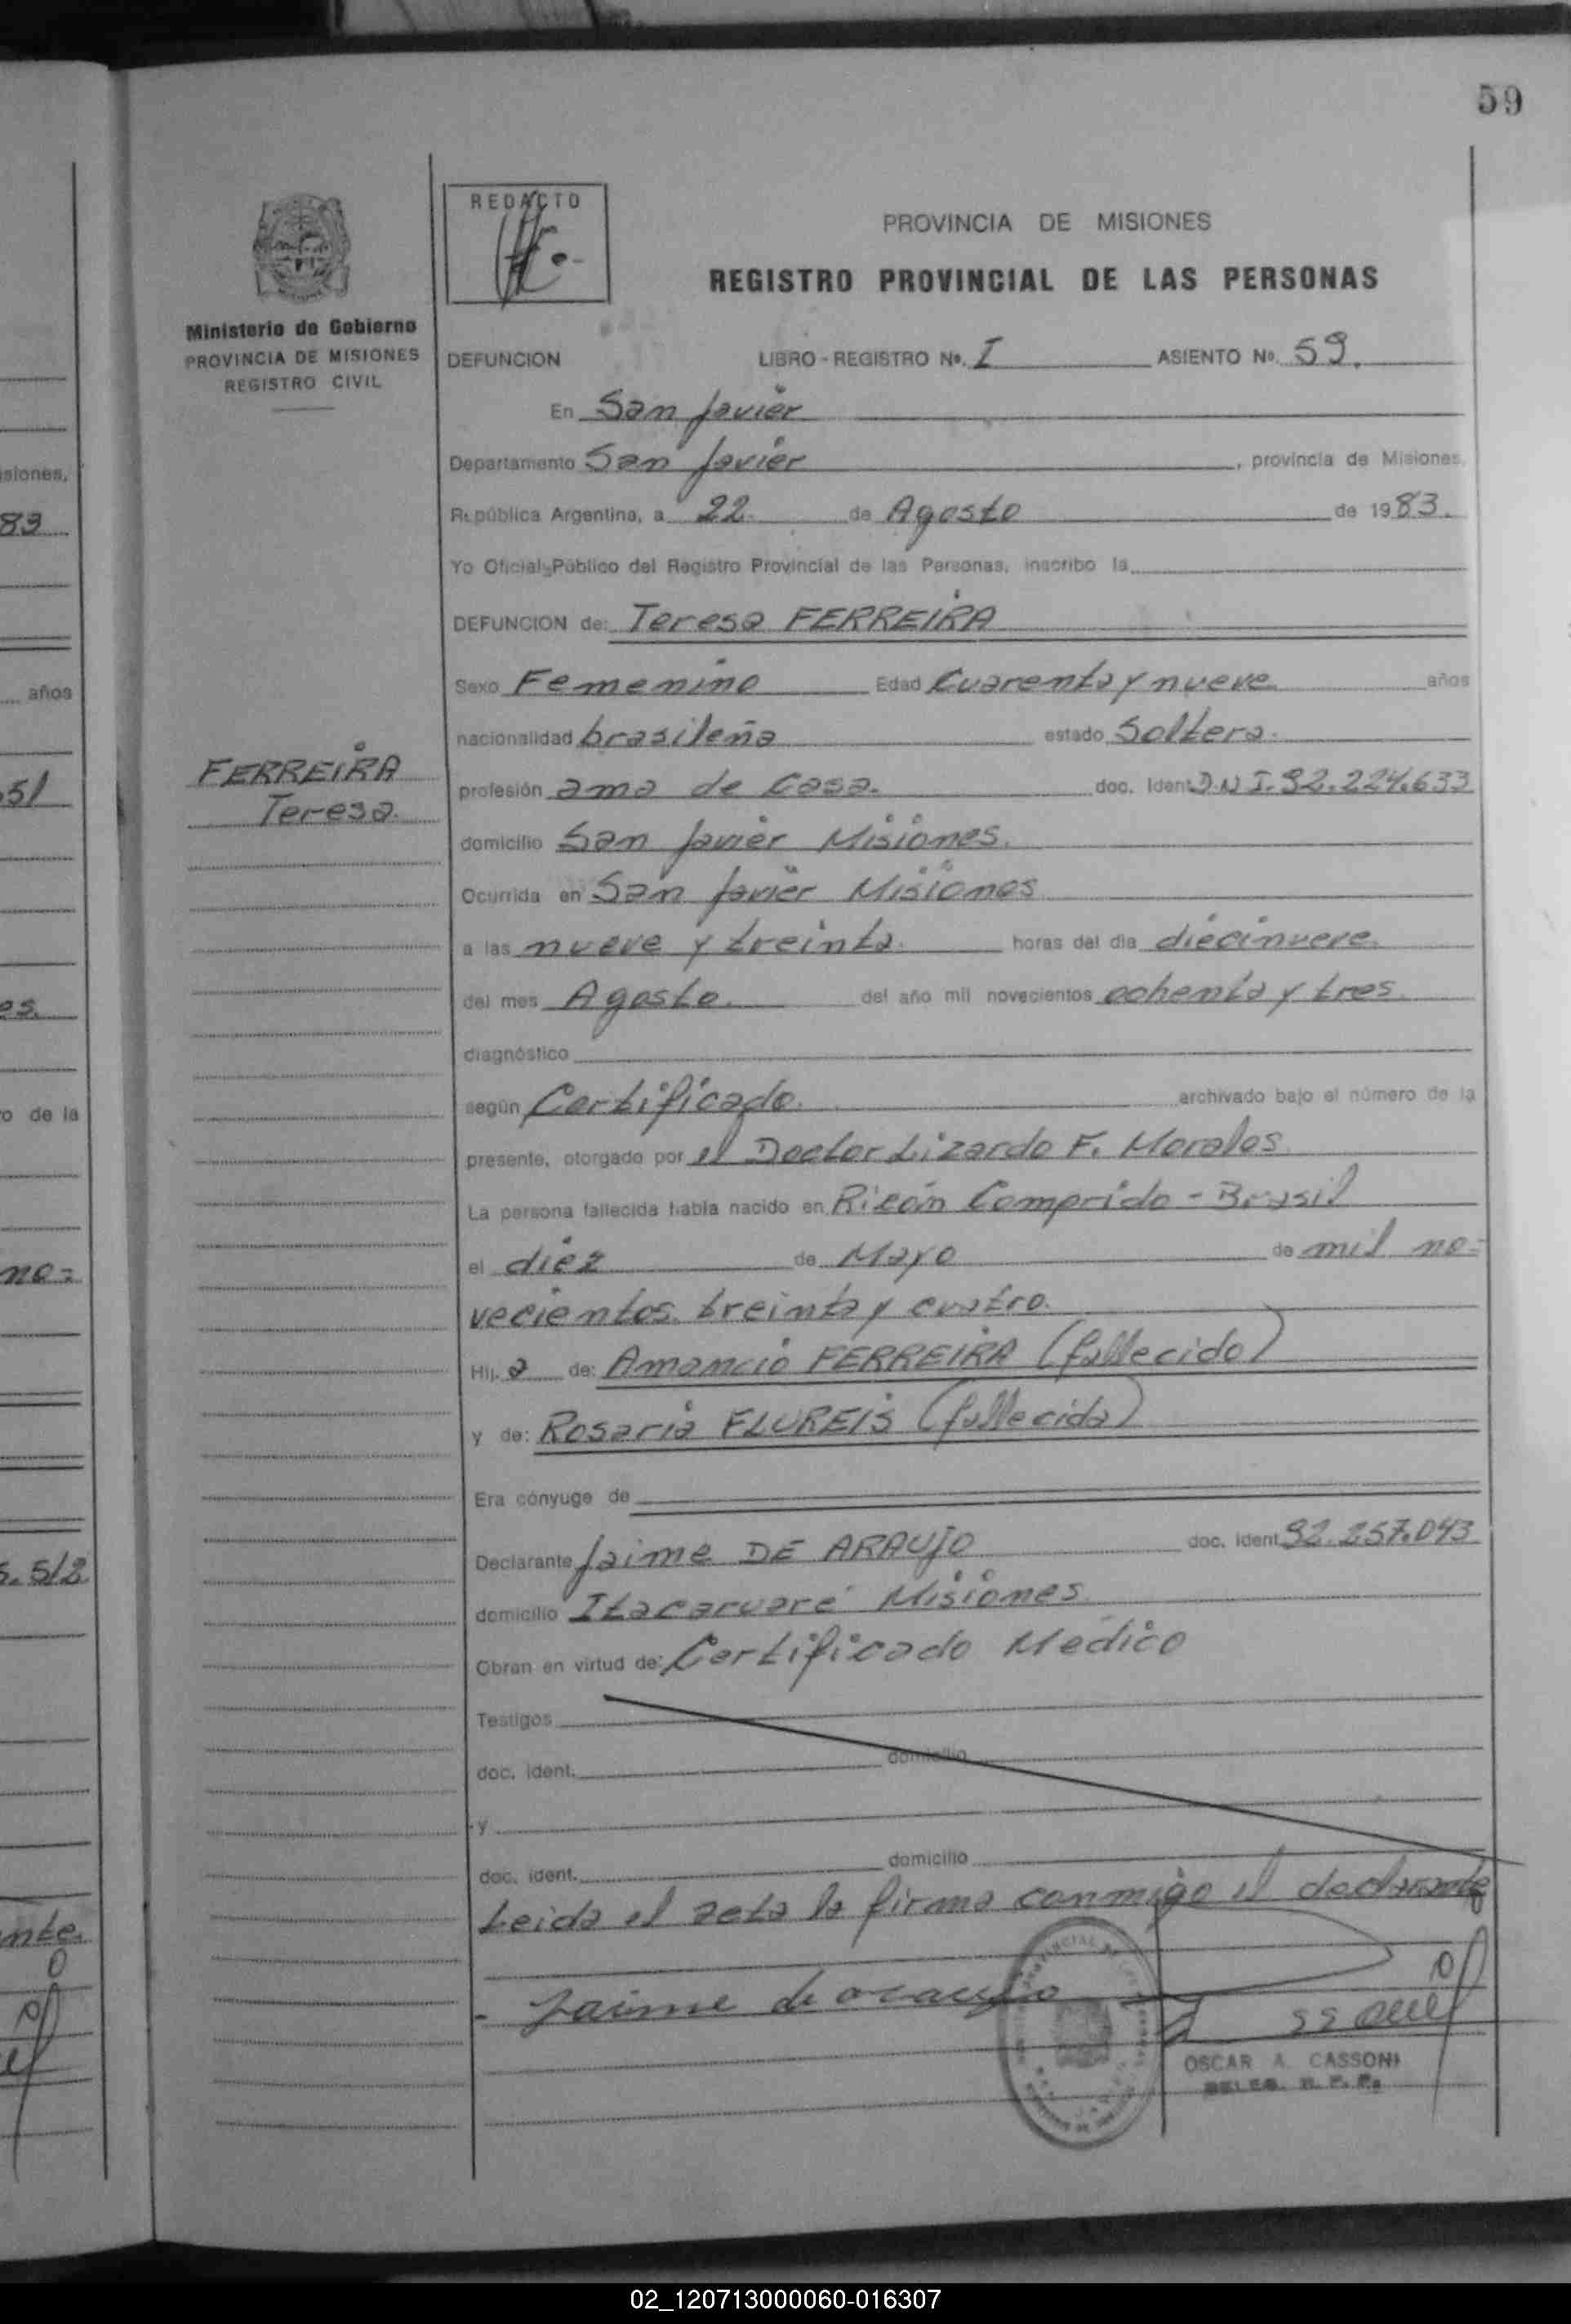 59
REDACTO
PROVINCIA DE MISIONES
REGISTRO PROVINCIAL DE LAS PERSONAS
Ministerio de Gobierno
PROVINCIA DE MISIONES
REGISTRO CIVIL
DEFUNCION LIBRO - REGISTRO Nº. I ASIENTO Nº. 59.
En San Javier
Departamento San Javier, provincia de Misiones,
República Argentina, a 22 de Agosto de 1983.
Yo Oficial Público del Registro Provincial de las Personas, inscribo la
DEFUNCION de: Teresa FERREIRA
Sexo Femenino Edad Cuarenta y nueve años
nacionalidad brasileña estado Soltera.
FERREIRA
Teresa.
profesión ama de Casa. doc. Ident. D.N.I. 92.224.633
domicilio San Javier Misiones.
Ocurrida en San Javier Misiones
a las nueve y treinta. horas del día diecinueve.
del mes Agosto. del año mil novecientos ochenta y tres.
diagnóstico
según Certificado. archivado bajo el número de la
presente, otorgado por el Doctor Lizardo F. Morales.
La persona fallecida había nacido en Ricón Comprido - Brasil
el diez de Mayo de mil no=
vecientos treinta y cuatro.
Hij a de: Amancio FERREIRA (fallecido)
y de: Rosaria FLUREIS (fallecida)
Era cónyuge de
Declarante Jaime DE ARAUJO doc. ident. 92.257.043
domicilio Itacaruaré Misiones.
Obran en virtud de: Certificado Medico
Testigos
doc. ident. domicilio
y
doc. ident. domicilio
Leida el acta la firma conmigo el declarante
Jaime de araujo
OSCAR A. CASSONI
DELEG. R. P. P.
siones,
83
años
51
es.
o de la
no=
5.512
nte.
02_120713000060-016307